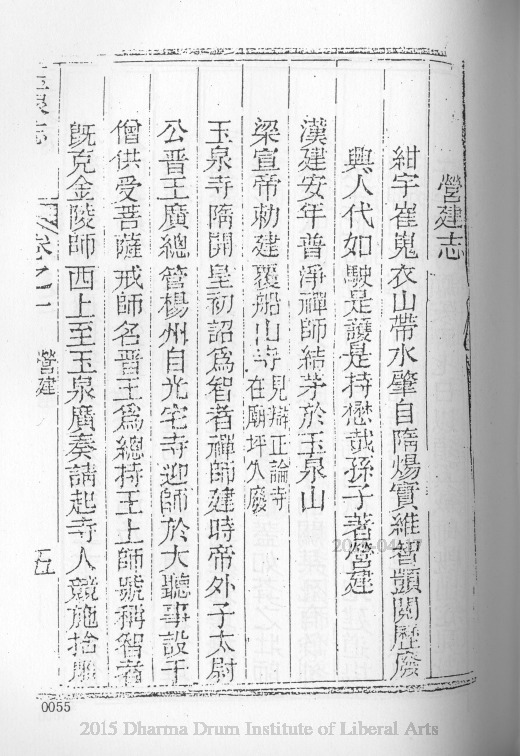 營建志
紺宇崔嵬衣山帶水肇自隋煬實維智顗閱歷廢
興人代如駛是護是持懋哉孫子著營建
漢建安年普淨禪師結茅於玉泉山
梁宣帝勅建覆船山寺見辯正論寺
在廟坪久廢
玉泉寺隋開皇初詔爲智者禪師建時帝外子太尉
公晋王廣總管楊州自光宅寺迎師於大聽事設千
僧供受菩薩戒師名晋王爲總持王上師號稱智者
既克金陵師西上至玉泉廣奏請起寺人競施捨雕
玉泉志
卷之一
營建
五
0055
2015 Dharma Drum Institute of Liberal Arts